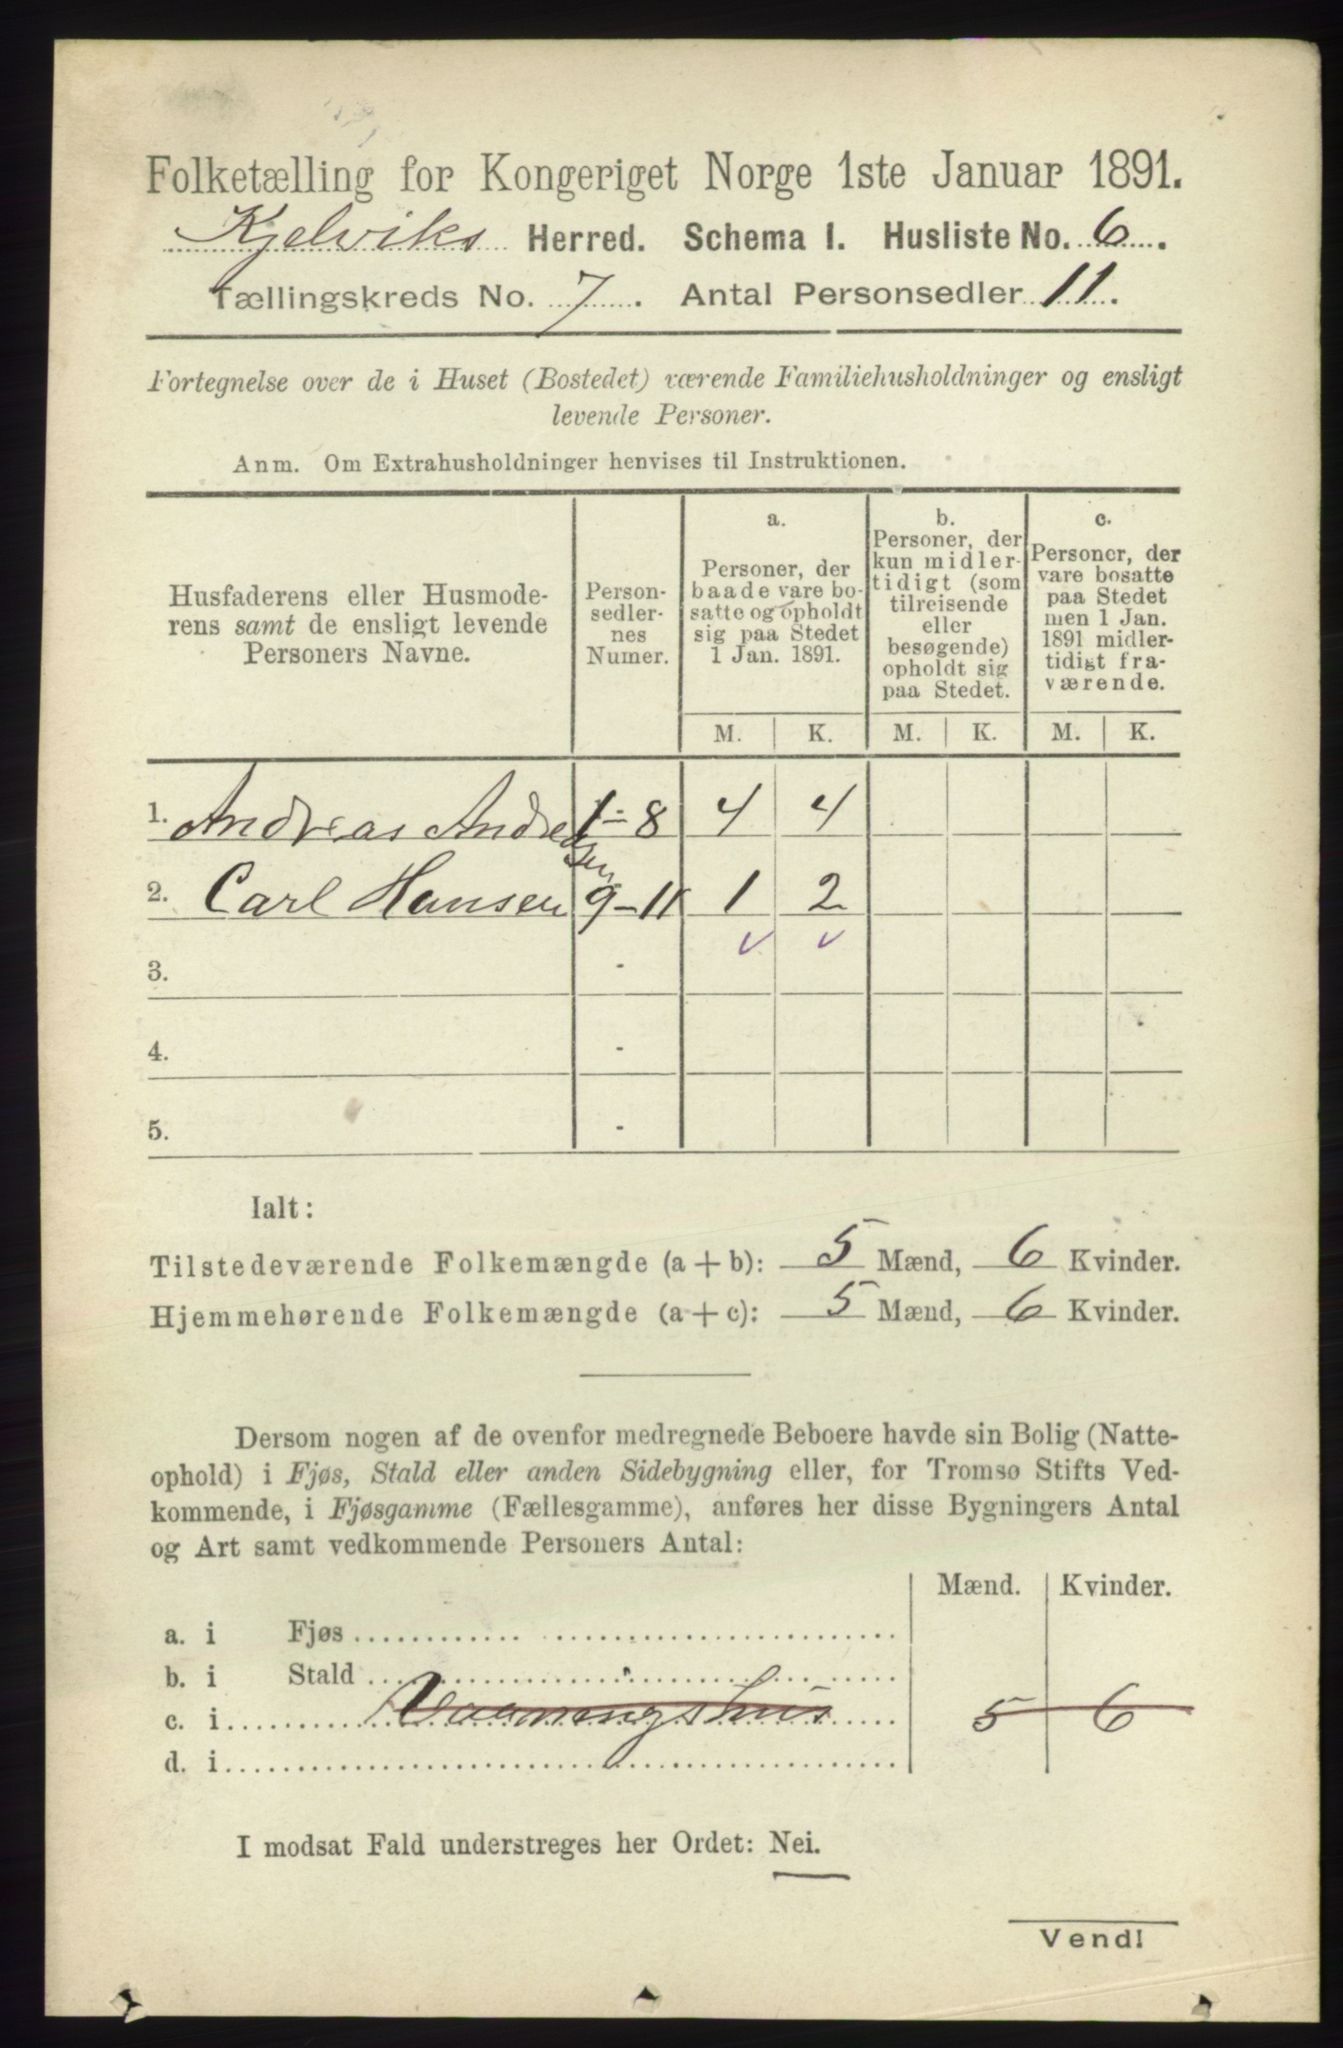 Folketælling for Kongeriget Norge 1ste Januar 1891.
Kjelviks Herred. Schema I. Husliste No. 6.
Tællingskreds No. 7. Antal Personsedler 11.
Fortegnelse over de i Huset (Bostedet) værende Familiehusholdninger og ensligt
levende Personer.
Anm. Om Extrahusholdninger henvises til Instruktionen.
Husfaderens eller Husmode-
rens samt de ensligt levende
Personers Navne.
Person-
sedler-
nes
Numer.
a.
Personer, der
baade vare bo-
satte og opholdt
sig paa Stedet
1 Jan. 1891.
b.
Personer, der
kun midler-
tidigt (som
tilreisende
eller
besøgende)
opholdt sig
paa Stedet.
c.
Personer, der
vare bosatte
paa Stedet
men 1 Jan.
1891 midler-
tidigt fra-
værende.
M. K. M. K. M. K.
1. Andreas Andreassen 1-8 4 4
2. Carl Hansen 9-11 1 2
3. -
4. -
5. -
Ialt:
Tilstedeværende Folkemængde (a+b): 5 Mænd, 6 Kvinder.
Hjemmehørende Folkemængde (a+c): 5 Mænd, 6 Kvinder.
Dersom nogen af de ovenfor medregnede Beboere havde sin Bolig (Natte-
ophold) i Fjøs, Stald eller anden Sidebygning eller, for Tromsø Stifts Ved-
kommende, i Fjøsgamme (Fællesgamme), anføres her disse Bygningers Antal
og Art samt vedkommende Personers Antal:
Mænd. Kvinder.
a. i Fjøs
b. i Stald
c. i Vaaningshus 5 6
d. i
I modsat Fald understreges her Ordet: Nei.
Vend!